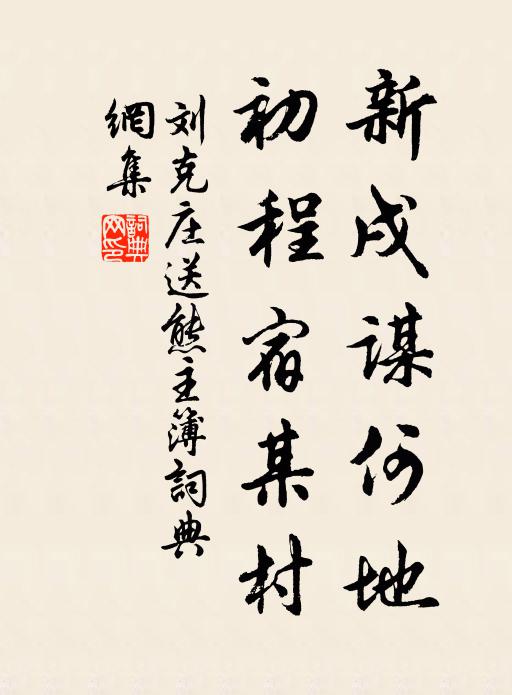 新戍谋何地
初程宿某村
刘克庄送熊主簿詞典
網集
詞典網印